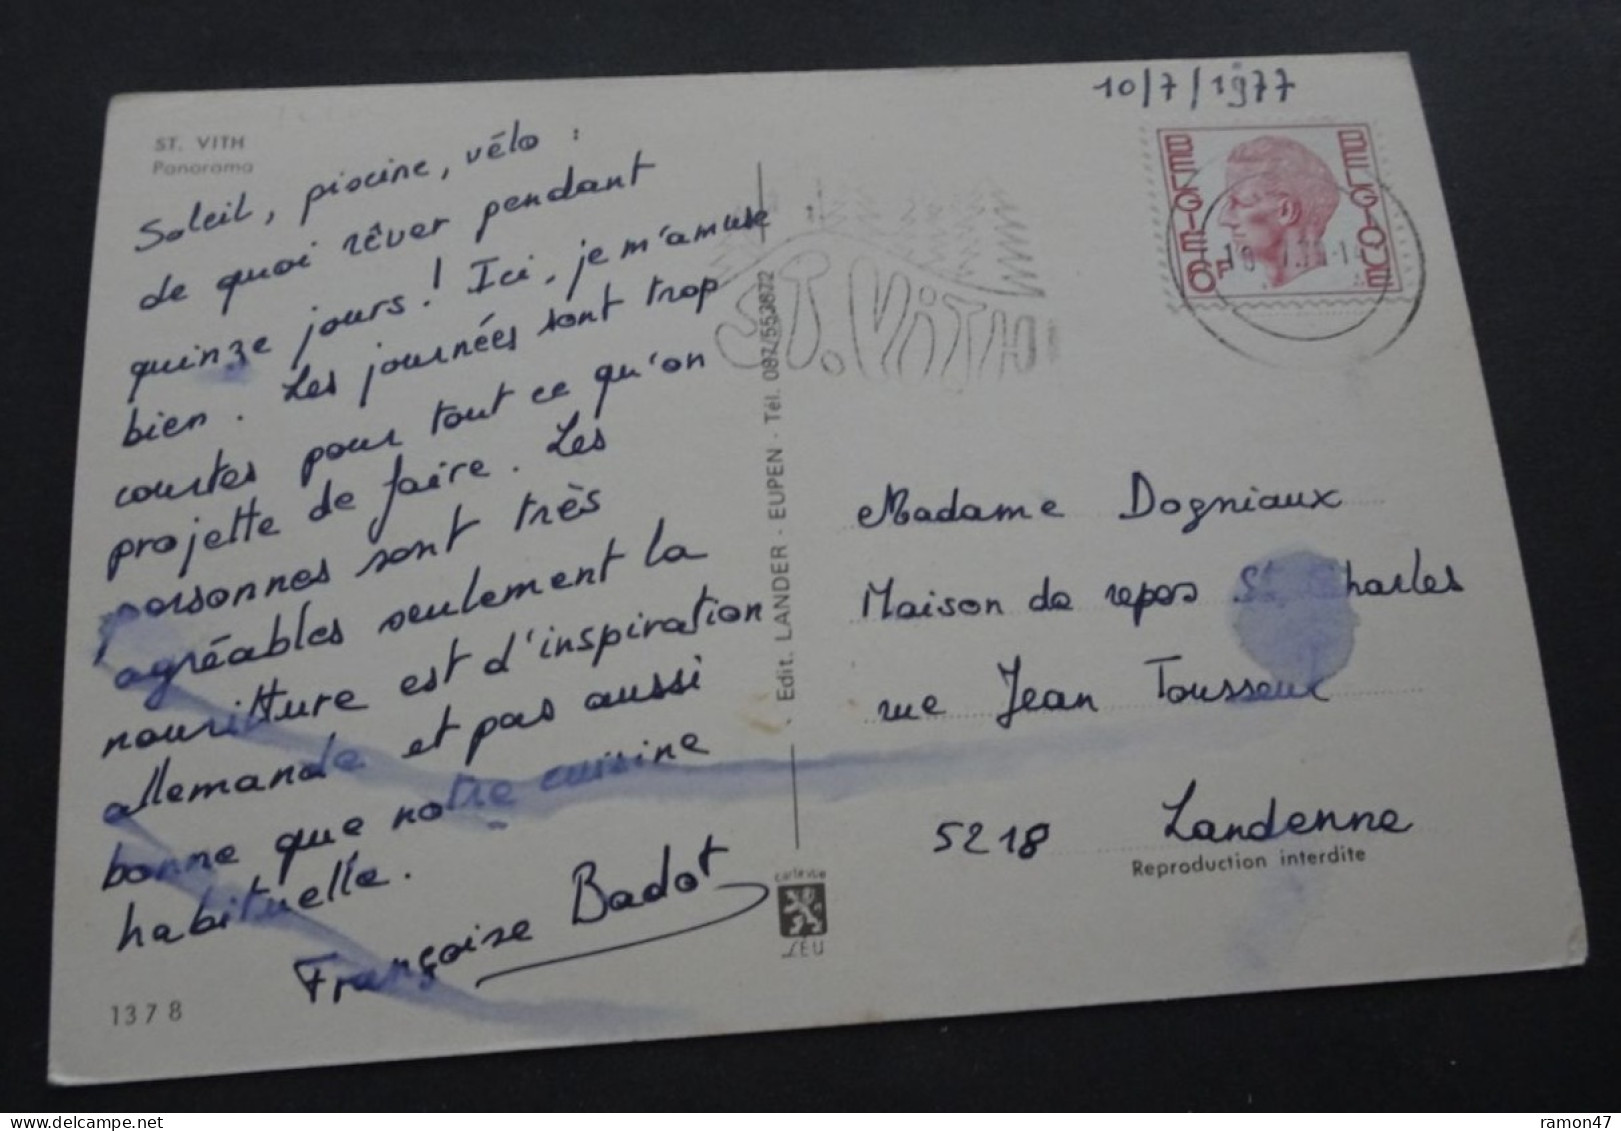 10/7/1977
ST. VITH
Panorama
Soleil, piscine, vélo :
de quoi rêver pendant
quinze jours ! Ici, je m'amuse
bien. Les journées sont trop
courtes pour tout ce qu'on
projette de faire. Les
personnes sont très
agréables seulement la
nourritture est d'inspiration
allemande et pas aussi
bonne que notre cuisine
habituelle.
Françoise Badot
1378
Edit. LANDER - EUPEN - Tél. 087/553872
ST. VITH
BELGIE
BELGIQUE
6F
Madame Dogniaux
Maison de repos St. Charles
rue Jean Tousseul
5218 Landenne
Reproduction interdite
LEU
ramon47